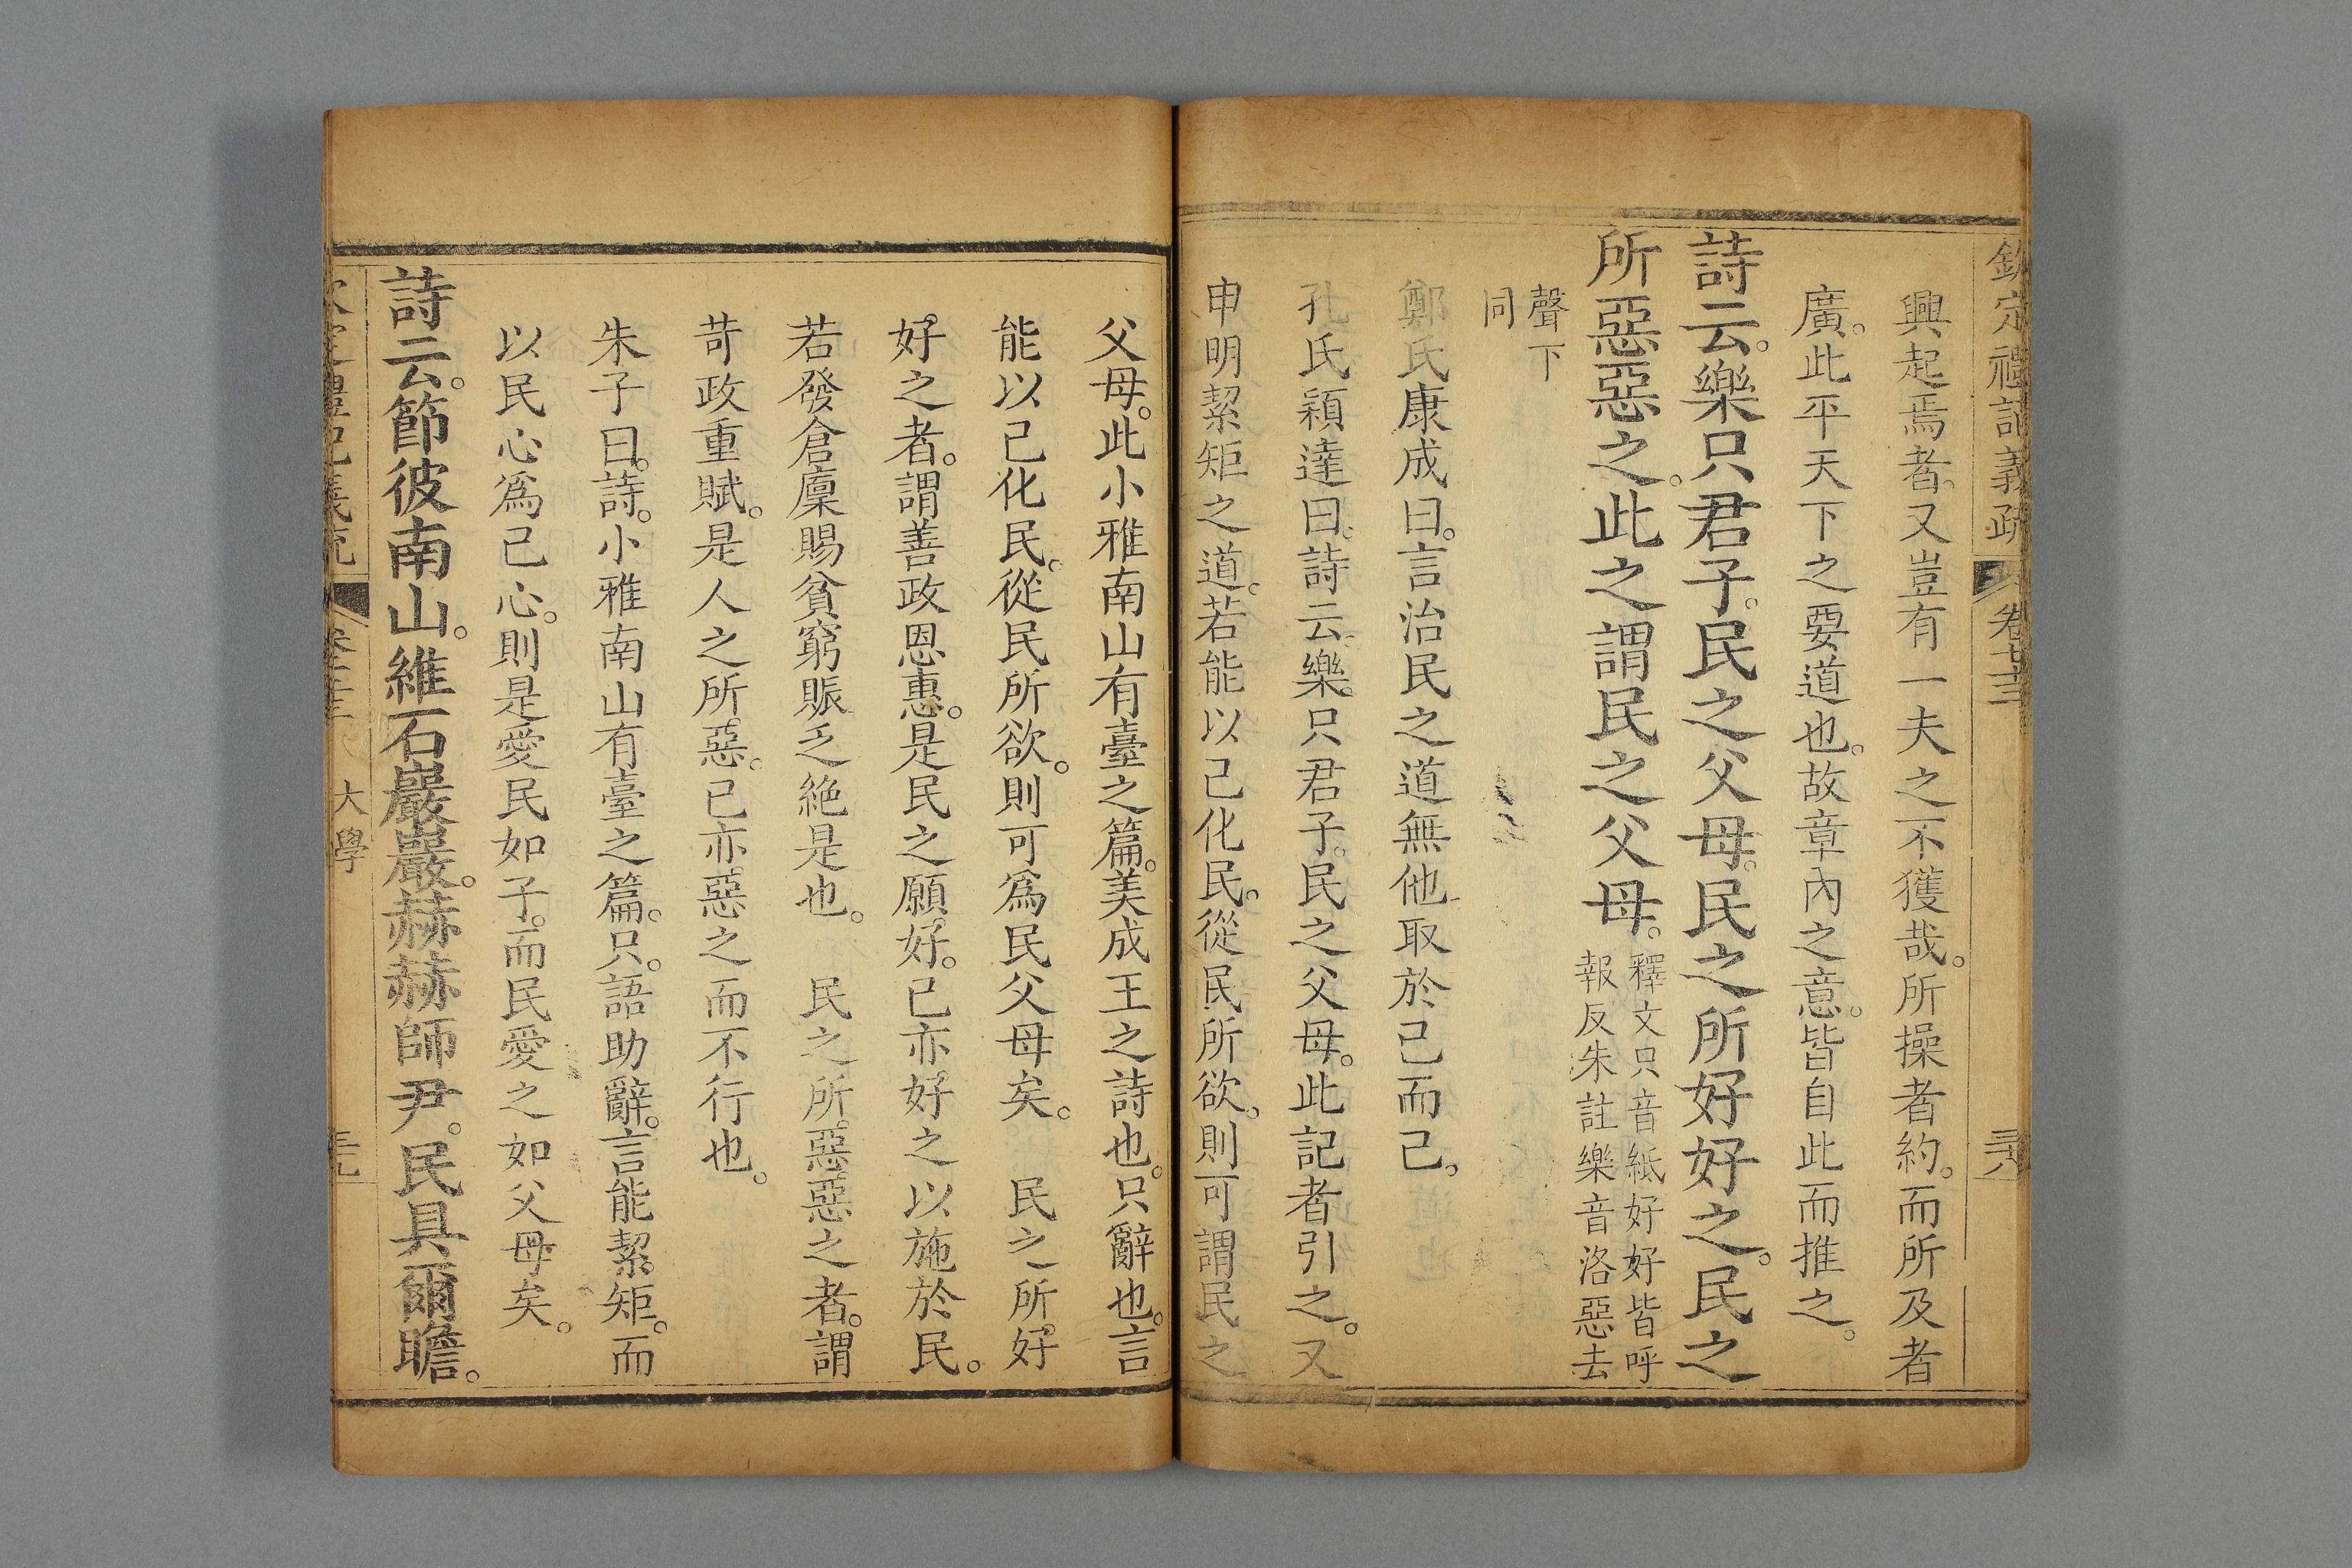 欽定禮記義疏 卷七十三 三十八
興起焉者。又豈有一夫之不獲哉。所操者約。而所及者
廣。此平天下之要道也。故章內之意。皆自此而推之。
詩云。樂只君子。民之父母。民之所好好之。民之
所惡惡之。此之謂民之父母。
釋文只音紙好好皆呼
報反朱註樂音洛惡去
聲下
同
鄭氏康成曰。言治民之道無他。取於己而已。
孔氏穎達曰。詩云。樂只君子。民之父母。此記者引之。又
申明絜矩之道。若能以己化民。從民所欲。則可謂民之
父母。此小雅南山有臺之篇。美成王之詩也。只辭也。言
能以己化民。從民所欲。則可為民父母矣。 民之所好
好之者。謂善政恩惠。是民之願好。己亦好之以施於民。
若發倉廩賜貧窮賑乏絕是也。 民之所惡惡之者。謂
苛政重賦。是人之所惡。己亦惡之而不行也。
朱子曰。詩。小雅南山有臺之篇。只。語助辭。言能絜矩。而
以民心為己心。則是愛民如子。而民愛之如父母矣。
詩云。節彼南山。維石巖巖。赫赫師尹。民具爾瞻。
大學